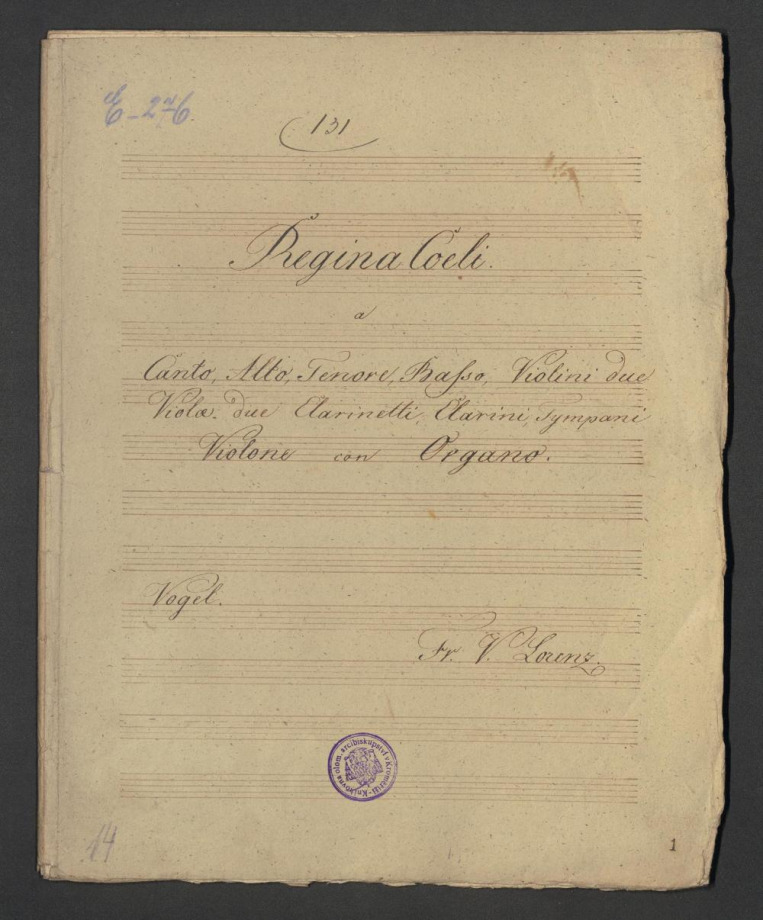 E-276
131
Regina Coeli.
a
Canto, Alto, Tenore, Baſso, Violini due
Violæ. due Clarinetti, Clarini, Tympani
Violone con Organo.
Vogel.
Fr. V. Lorenz.
Knihovna olom. arcibiskupství v Kroměříži
14
1